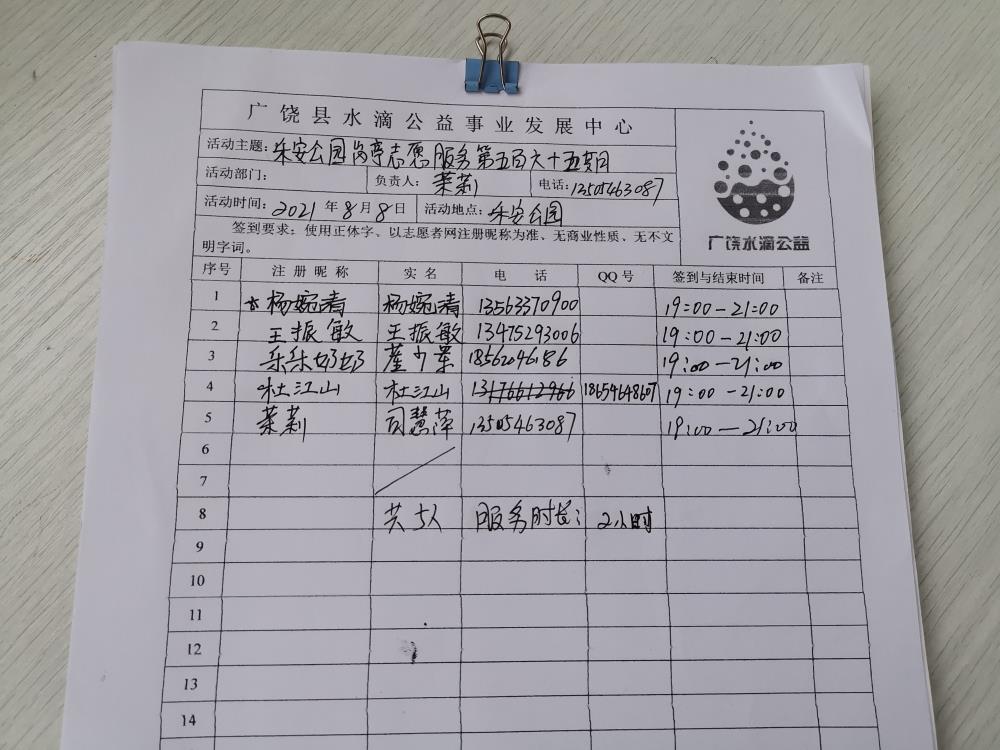 广饶县水滴公益事业发展中心
活动主题：乐安公园岗亭志愿服务第五百六十五期
活动部门： 负责人：茉莉 电话：13505463087
活动时间：2021年8月8日 活动地点：乐安公园
签到要求：使用正体字、以志愿者网注册昵称为准、无商业性质、无不文
明字词。
广饶水滴公益
序号 注册昵称 实名 电话 QQ号 签到与结束时间 备注
1 ☆杨婉清 杨婉清 13563370900 19:00-21:00
2 王振敏 王振敏 13475293006 19:00-21:00
3 乐乐奶奶 18562046186 19:00-21:00
4 杜江山 杜江山 13176612966 18654648607 19:00-21:00
5 茉莉 司慧萍 13505463087 19:00-21:00
6
7
8 共5人 服务时长：2小时
9
10
11
12
13
14